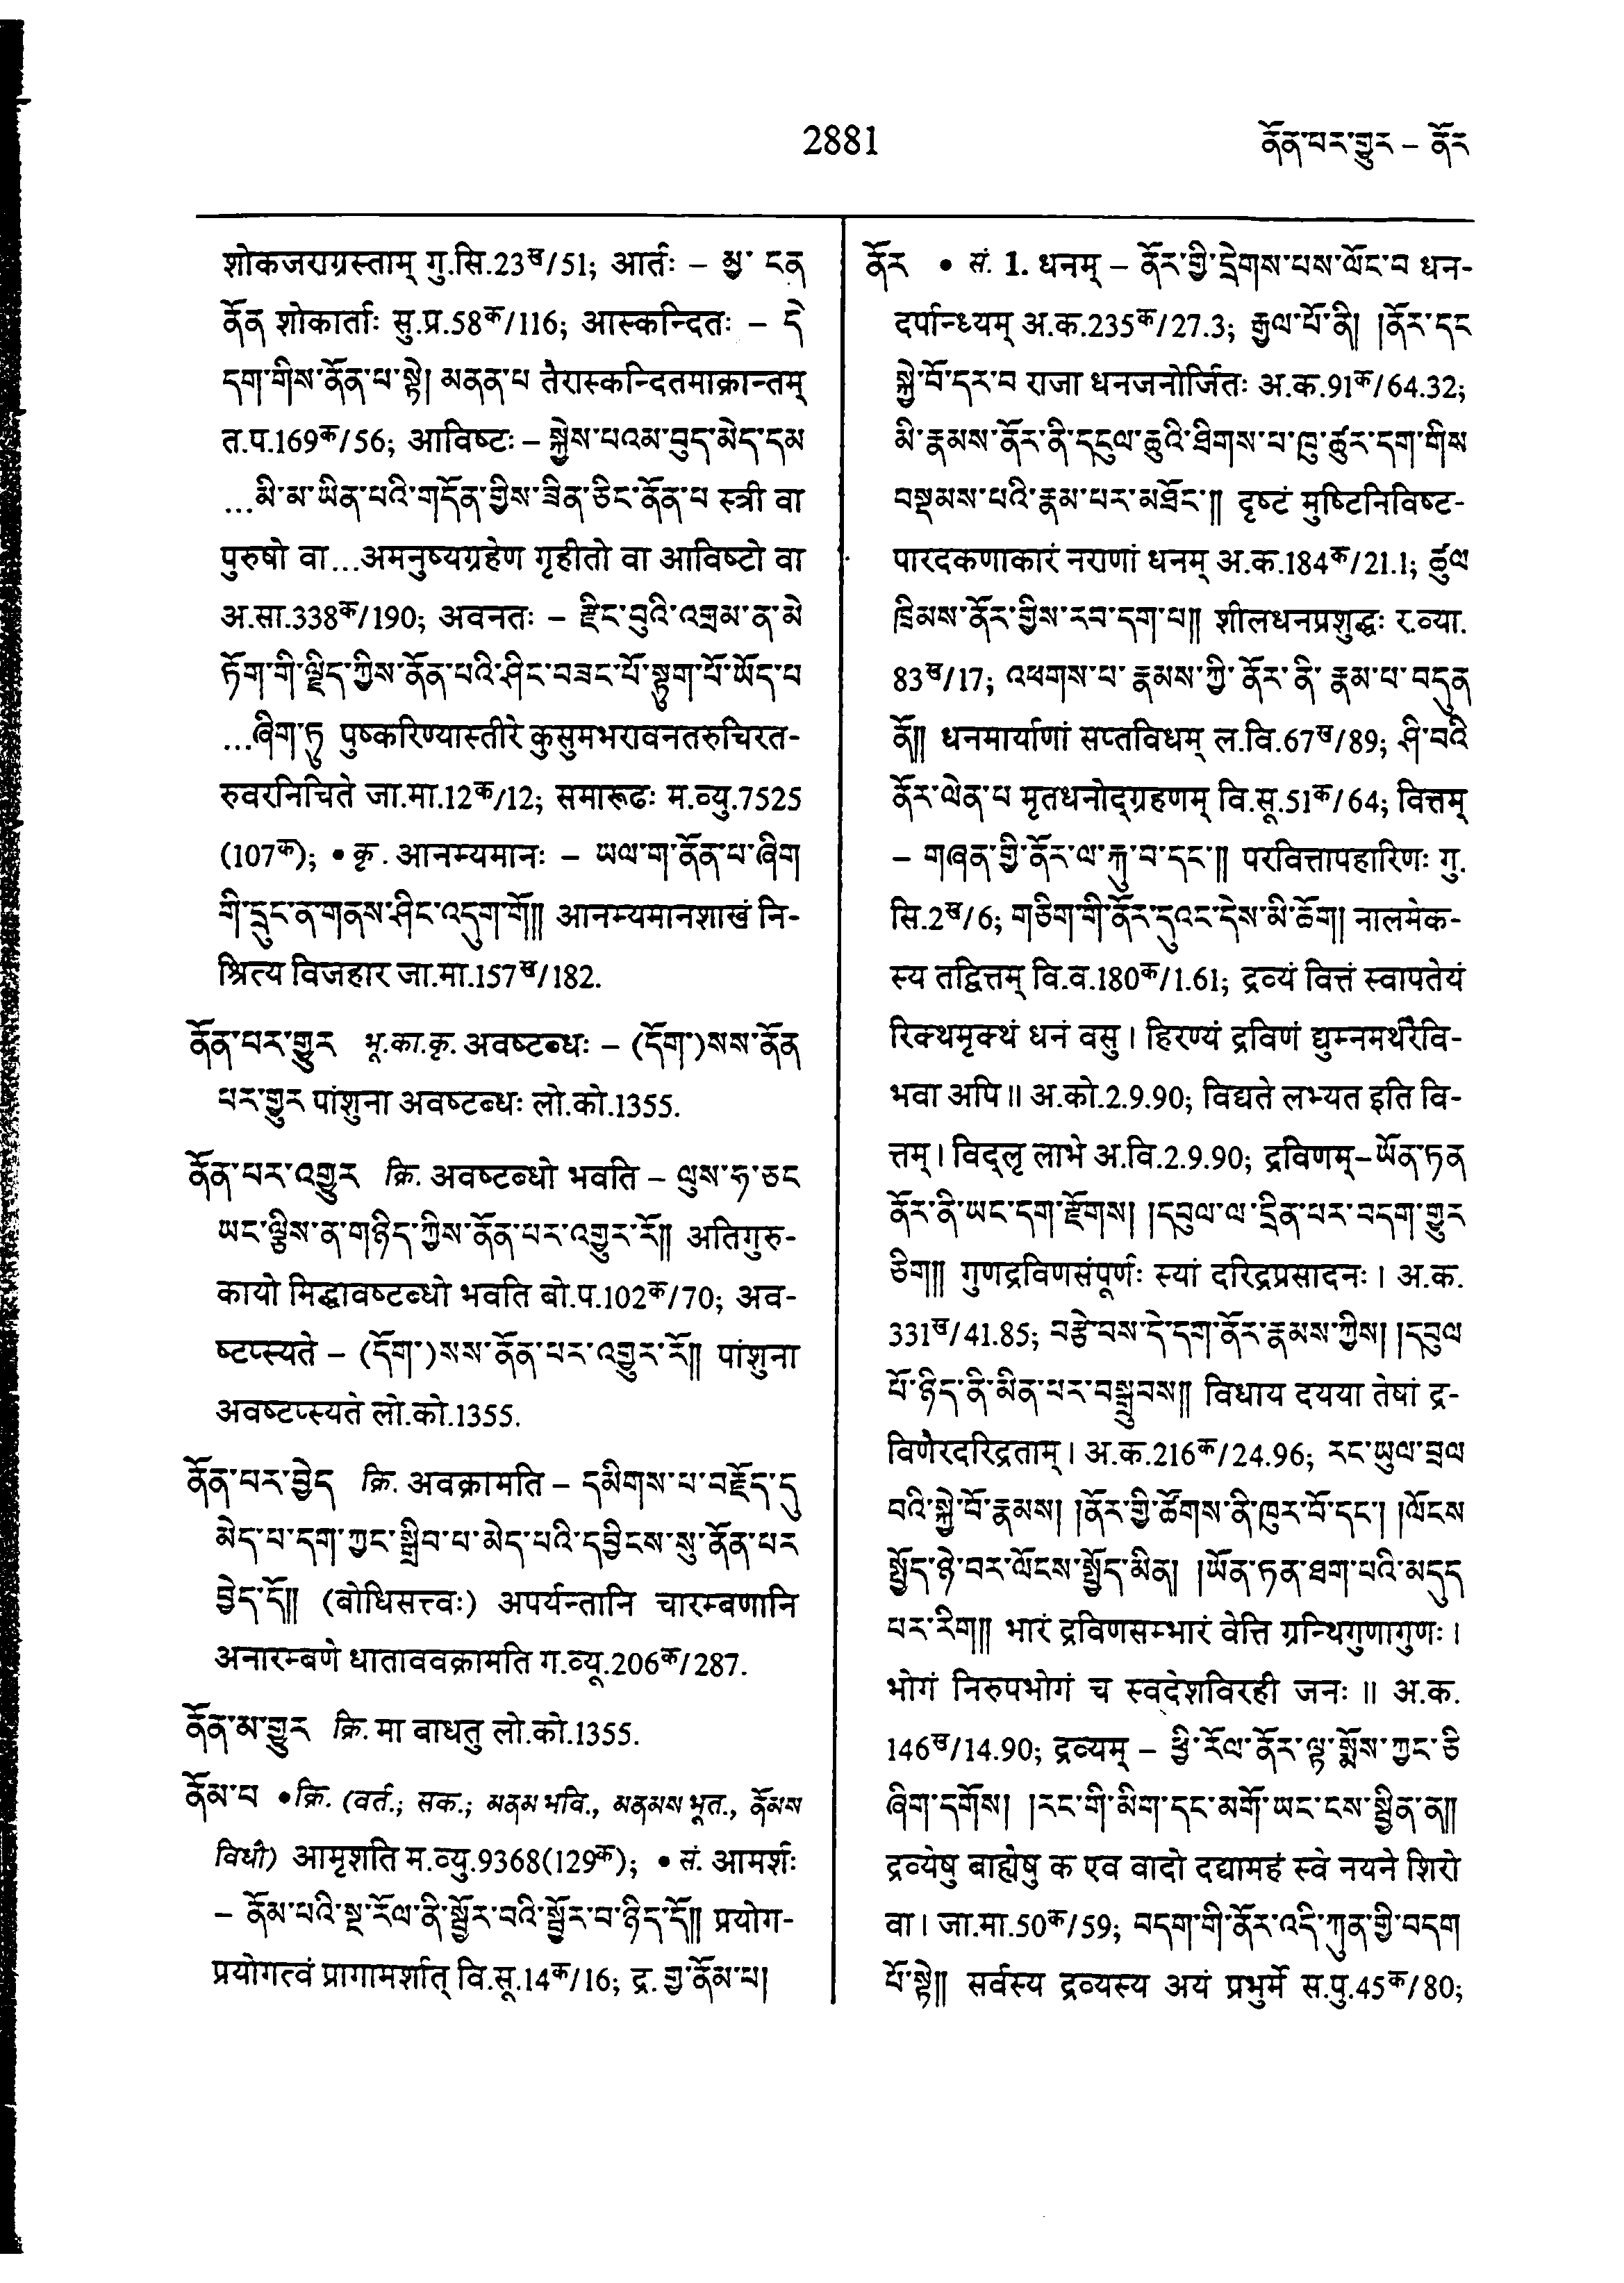 2881
ནོན་པར་གྱུར – ནོར
शोकजराग्रस्ताम् गु.सि.23ख/51; आर्तः – མྱ་ ངན
ནོན शोकार्ताः सु.प्र.58क/116; आस्कन्दितः – དེ
དག་གིས་ནོན་པ་སྟེ། མནན་པ तैरास्कन्दितमाक्रान्तम्
त.प.169क/56; आविष्टः – སྐྱེས་པའམ་བུད་མེད་དམ
…མི་མ་ཡིན་པའི་གདོན་གྱིས་ཟིན་ཅིང་ནོན་པ स्त्री वा
पुरुषो वा…अमनुष्यग्रहेण गृहीतो वा आविष्टो वा
अ.सा.338क/190; अवनतः – རྫིང་བུའི་འགྲམ་ན་མེ
ཏོག་གི་ལྗིད་ཀྱིས་ནོན་པའི་ཤིང་བཟང་པོ་སྟུག་པོ་ཡོད་པ
…ཞིག་ཏུ पुष्करिण्यास्तीरे कुसुमभरावनतरुचिरत-
रुवरनिचिते जा.मा.12क/12; समारूढः म.व्यु.7525
(107क); • कृ. आनम्यमानः – ཡལ་ག་ནོན་པ་ཞིག
གི་དྲུང་ན་གནས་ཤིང་འདུག་གོ།། आनम्यमानशाखं नि-
श्रित्य विजहार जा.मा.157ख/182.
ནོན་པར་གྱུར भू.का.कृ. अवष्टब्धः – (དོག་)སས་ནོན
པར་གྱུར पांशुना अवष्टब्धः लो.को.1355.
ནོན་པར་འགྱུར क्रि. अवष्टब्धो भवति – ལུས་ཧ་ཅང
ཡང་ལྕིས་ན་གཉིད་ཀྱིས་ནོན་པར་འགྱུར་རོ།། अतिगुरु-
कायो मिद्धावष्टब्धो भवति बो.प.102क/70; अव-
ष्टप्स्यते – (དོག་)སས་ནོན་པར་འགྱུར་རོ།། पांशुना
अवष्टप्स्यते लो.को.1355.
ནོན་པར་བྱེད क्रि. अवक्रामति – དམིགས་པ་བརྗོད་དུ
མེད་པ་དག་ཀྱང་སྒྲིབ་པ་མེད་པའི་དབྱིངས་སུ་ནོན་པར
བྱེད་དོ།། (बोधिसत्त्वः) अपर्यन्तानि चारम्बणानि
अनारम्बणे धाताववक्रामति ग.व्यू.206क/287.
ནོན་མ་གྱུར क्रि. मा बाधतु लो.को.1355.
ནོམ་པ •क्रि. (वर्त.; सक.; མནམ भवि., མནམས भूत., ནོམས
विधौ) आमृशति म.व्यु.9368(129क); • सं. आमर्शः
– ནོམ་པའི་སྔ་རོལ་ནི་སྦྱོར་བའི་སྦྱོར་བ་ཉིད་དོ།། प्रयोग-
प्रयोगत्वं प्रागामर्शात् वि.सू.14क/16; द्र. གྱ་ནོམ་པ།
ནོར • सं. 1. धनम् – ནོར་གྱི་དྲེགས་པས་ལོང་བ धन-
दर्पान्ध्यम् अ.क.235क/27.3; རྒྱལ་པོ་ནི། །ནོར་དང
སྐྱེ་བོ་དར་བ राजा धनजनोर्जितः अ.क.91क/64.32;
མི་རྣམས་ནོར་ནི་དངུལ་ཆུའི་ཐིགས་པ་ཁུ་ཚུར་དག་གིས
བསྡམས་པའི་རྣམ་པར་མཐོང་།། दृष्टं मुष्टिनिविष्ट-
पारदकणाकारं नराणां धनम् अ.क.184क/21.1; ཚུལ
ཁྲིམས་ནོར་གྱིས་རབ་དག་པ།། शीलधनप्रशुद्धः र.व्या.
83ख/17; འཕགས་པ་ རྣམས་ཀྱི་ ནོར་ནི་ རྣམ་པ་བདུན
ནོ།། धनमार्याणां सप्तविधम् ल.वि.67ख/89; ཤི་བའི
ནོར་ལེན་པ मृतधनोद्ग्रहणम् वि.सू.51क/64; वित्तम्
– གཞན་གྱི་ནོར་ལ་རྐུ་བ་དང་།། परवित्तापहारिणः गु.
सि.2ख/6; གཅིག་གི་ནོར་དུའང་དེས་མི་ཆོག། नालमेक-
स्य तद्वित्तम् वि.व.180क/1.61; द्रव्यं वित्तं स्वापतेयं
रिक्थमृक्थं धनं वसु। हिरण्यं द्रविणं द्युम्नमर्थरैवि-
भवा अपि॥ अ.को.2.9.90; विद्यते लभ्यत इति वि-
त्तम्। विद्लृ लाभे अ.वि.2.9.90; द्रविणम्–ཡོན་ཏན
ནོར་ནི་ཡང་དག་རྫོགས། །དབུལ་ལ་དྲིན་པར་བདག་གྱུར
ཅིག།། गुणद्रविणसंपूर्णः स्यां दरिद्रप्रसादनः। अ.क.
331ख/41.85; བརྩེ་བས་དེ་དག་ནོར་རྣམས་ཀྱིས། །དབུལ
པོ་ཉིད་ནི་མིན་པར་བསྒྲུབས།། विधाय दयया तेषां द्र-
विणैरदरिद्रताम्। अ.क.216क/24.96; རང་ཡུལ་བྲལ
བའི་སྐྱེ་བོ་རྣམས། །ནོར་གྱི་ཚོགས་ནི་ཁུར་པོ་དང་། །ལོངས
སྤྱོད་ཉེ་བར་ལོངས་སྤྱོད་མིན། །ཡོན་ཏན་ཐག་པའི་མདུད
པར་རིག།། भारं द्रविणसम्भारं वेत्ति ग्रन्थिगुणागुणः।
भोगं निरुपभोगं च स्वदेशविरही जनः॥ अ.क.
146ख/14.90; द्रव्यम् – ཕྱི་རོལ་ནོར་ལྟ་སྨོས་ཀྱང་ཅི
ཞིག་དགོས། །རང་གི་མིག་དང་མགོ་ཡང་ངས་སྦྱིན་ན།།
द्रव्येषु बाह्येषु क एव वादो दद्यामहं स्वे नयने शिरो
वा। जा.मा.50क/59; བདག་གི་ནོར་འདི་ཀུན་གྱི་བདག
པོ་སྟེ།། सर्वस्य द्रव्यस्य अयं प्रभुर्मे स.पु.45क/80;